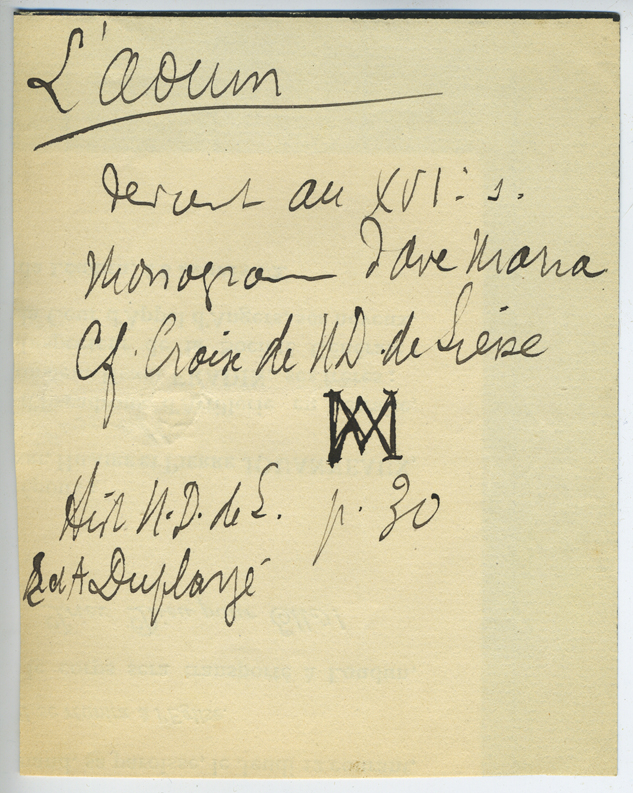 L'aoum
devient au XVIe s.
Monogramme d'ave Maria
Cf. Croix de N.D. de Liesse
AM
Hist N.D. de L. p. 30
Ed A Duployé